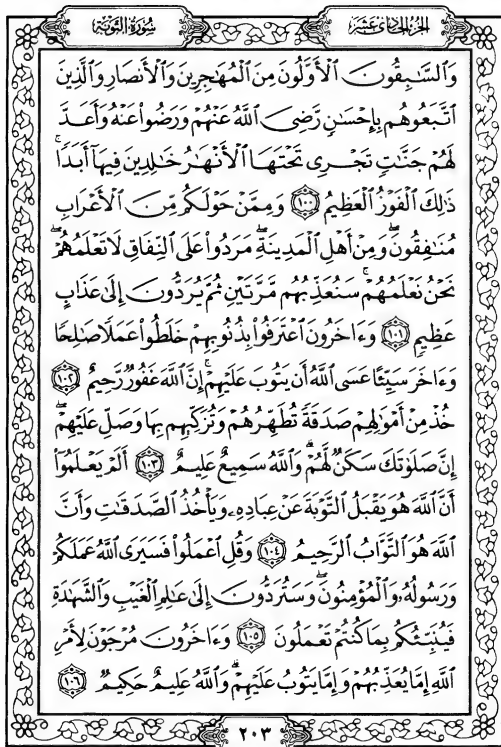 سُورَةُ التَّوْبَةِ
الجُزْءُ الحَادِي عَشَر
وَٱلسَّٰبِقُونَ ٱلْأَوَّلُونَ مِنَ ٱلْمُهَٰجِرِينَ وَٱلْأَنصَارِ وَٱلَّذِينَ
ٱتَّبَعُوهُم بِإِحْسَٰنٍ رَّضِىَ ٱللَّهُ عَنْهُمْ وَرَضُوا۟ عَنْهُ وَأَعَدَّ
لَهُمْ جَنَّٰتٍ تَجْرِى تَحْتَهَا ٱلْأَنْهَٰرُ خَٰلِدِينَ فِيهَآ أَبَدًا ۚ
ذَٰلِكَ ٱلْفَوْزُ ٱلْعَظِيمُ ١٠٠ وَمِمَّنْ حَوْلَكُم مِّنَ ٱلْأَعْرَابِ
مُنَٰفِقُونَ ۖ وَمِنْ أَهْلِ ٱلْمَدِينَةِ ۖ مَرَدُوا۟ عَلَى ٱلنِّفَاقِ لَا تَعْلَمُهُمْ ۖ
نَحْنُ نَعْلَمُهُمْ ۚ سَنُعَذِّبُهُم مَّرَّتَيْنِ ثُمَّ يُرَدُّونَ إِلَىٰ عَذَابٍ
عَظِيمٍ ١٠١ وَءَاخَرُونَ ٱعْتَرَفُوا۟ بِذُنُوبِهِمْ خَلَطُوا۟ عَمَلًا صَٰلِحًا
وَءَاخَرَ سَيِّئًا عَسَى ٱللَّهُ أَن يَتُوبَ عَلَيْهِمْ ۚ إِنَّ ٱللَّهَ غَفُورٌ رَّحِيمٌ ١٠٢
خُذْ مِنْ أَمْوَٰلِهِمْ صَدَقَةً تُطَهِّرُهُمْ وَتُزَكِّيهِم بِهَا وَصَلِّ عَلَيْهِمْ ۖ
إِنَّ صَلَوٰتَكَ سَكَنٌ لَّهُمْ ۗ وَٱللَّهُ سَمِيعٌ عَلِيمٌ ١٠٣ أَلَمْ يَعْلَمُوٓا۟
أَنَّ ٱللَّهَ هُوَ يَقْبَلُ ٱلتَّوْبَةَ عَنْ عِبَادِهِۦ وَيَأْخُذُ ٱلصَّدَقَٰتِ وَأَنَّ
ٱللَّهَ هُوَ ٱلتَّوَّابُ ٱلرَّحِيمُ ١٠٤ وَقُلِ ٱعْمَلُوا۟ فَسَيَرَى ٱللَّهُ عَمَلَكُمْ
وَرَسُولُهُۥ وَٱلْمُؤْمِنُونَ ۖ وَسَتُرَدُّونَ إِلَىٰ عَٰلِمِ ٱلْغَيْبِ وَٱلشَّهَٰدَةِ
فَيُنَبِّئُكُم بِمَا كُنتُمْ تَعْمَلُونَ ١٠٥ وَءَاخَرُونَ مُرْجَوْنَ لِأَمْرِ
ٱللَّهِ إِمَّا يُعَذِّبُهُمْ وَإِمَّا يَتُوبُ عَلَيْهِمْ ۗ وَٱللَّهُ عَلِيمٌ حَكِيمٌ ١٠٦
٢٠٣